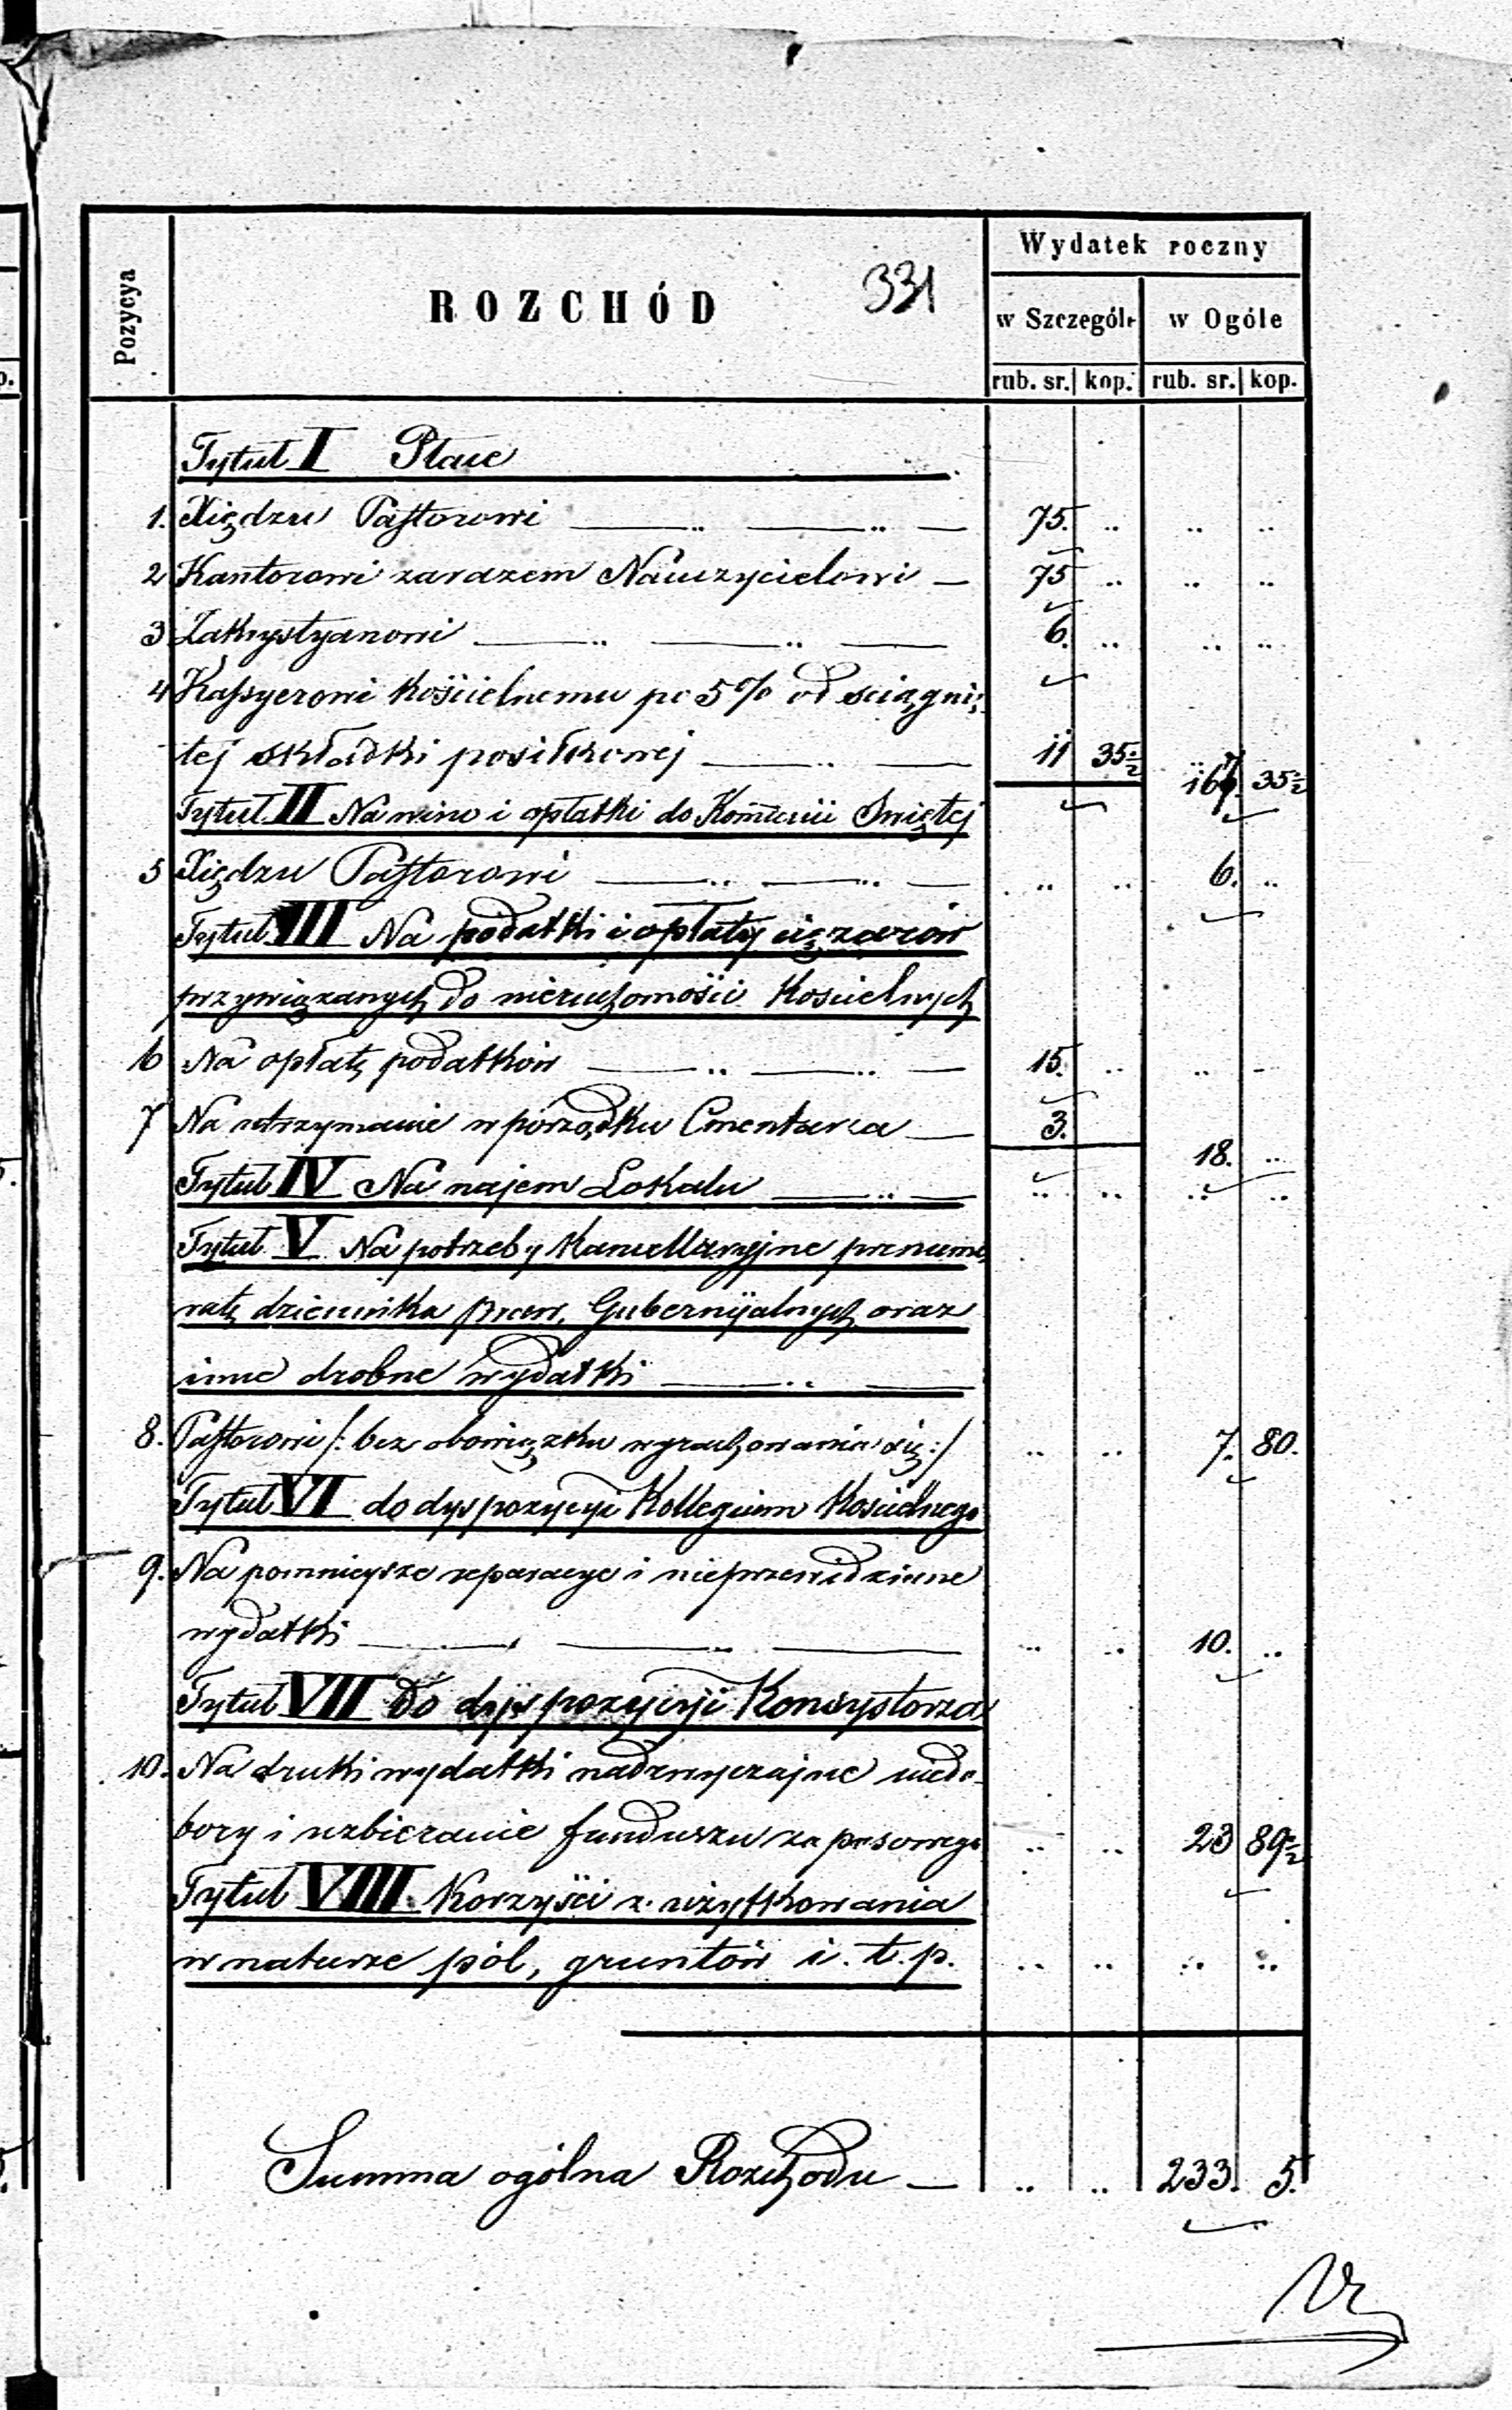 Wydatek roczny
Pozycya
ROZCHÓD 331
w Szczególe w Ogóle
rub. sr. kop. rub. sr. kop.
Tytuł I Płace
1. Xiędzu Pastorowi 75. .. .. ..
2 Kantorowi zarazem Nauczycielowi 75 .. .. ..
3 Zakrystyanowi 6. .. .. ..
4 Kassyerowi Kościelnemu po 5% od sciągnię
tej składki posiłkowej 11 35½ 167. 35½
Tytuł II Na wino i opłatki do Komunii Swiętej
5 Xiędzu Pastorowi .. .. 6. ..
Tytuł III Na podatki i opłaty ciężarów
przywiązanych do nieruchomości Kościelnych
6 Na opłatę podatków 15. .. .. ..
7 Na utrzymanie w porządku Cmentarza 3.
18. ..
Tytuł IV Na najem Lokalu .. .. .. ..
Tytuł V Na potrzeby Kancellaryjne prenume
ratę dziennika praw, Gubernijalnych oraz
inne drobne wydatki
8. Pastorowi /: bez obowiązku wyrachowania się :/ .. .. 7. 80.
Tytuł VI do dyspozycyi Kollegium Koscielnego
9. Na pomniejsze reparacye i nieprzewidziane
wydatki .. .. 10. ..
Tytuł VII Do dyspozycyi Konsystorza
10. Na druki wydatki nadzwyczajne niedo-
bory i uzbieranie funduszu zapasowego .. .. 23 89½
Tytuł VIII. Korzyści z użytkowania
w naturze pól, gruntów i. t. p. .. .. .. ..
Summa ogólna Rozchodu .. .. 233. 5.